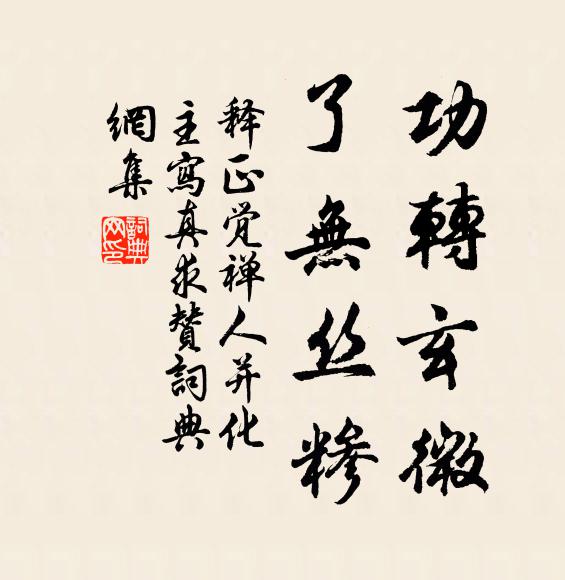 功轉玄微
了無丝糁
释正觉禅人并化
主寫真求贊詞典
網集
詞典
网印